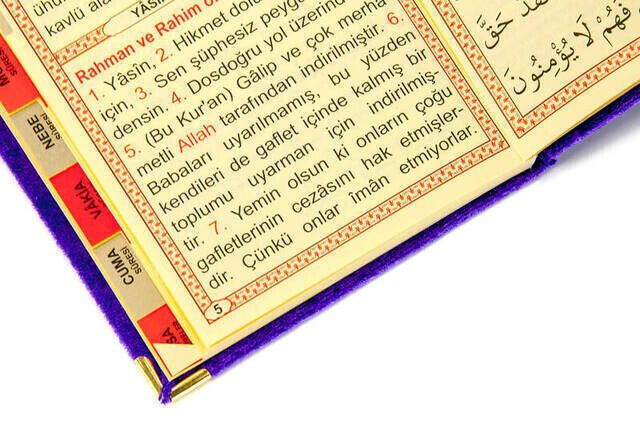 kavlü ala
YÂSÎN
Rahman ve Rahim
1. Yâsîn, 2. Hikmet
için, 3. Sen şüphesiz
densin. 4. Dosdoğru yol üzerine
5. (Bu Kur'an) Gâlip ve çok merha
metli Allah tarafından indirilmiştir. 6.
Babaları uyarılmamış, bu yüzden
kendileri de gaflet içinde kalmış bir
toplumu uyarman için indirilmiş-
tir. 7. Yemin olsun ki onların çoğu
gafletlerinin cezâsını hak etmişler-
dir. Çünkü onlar imân etmiyorlar.
5
SÛRESİ
NEBE
SÛRESİ
VÂKIA
CUMA
SÛRESİ
حَقَّ
فَهُمْ لَا يُؤْمِنُونَ